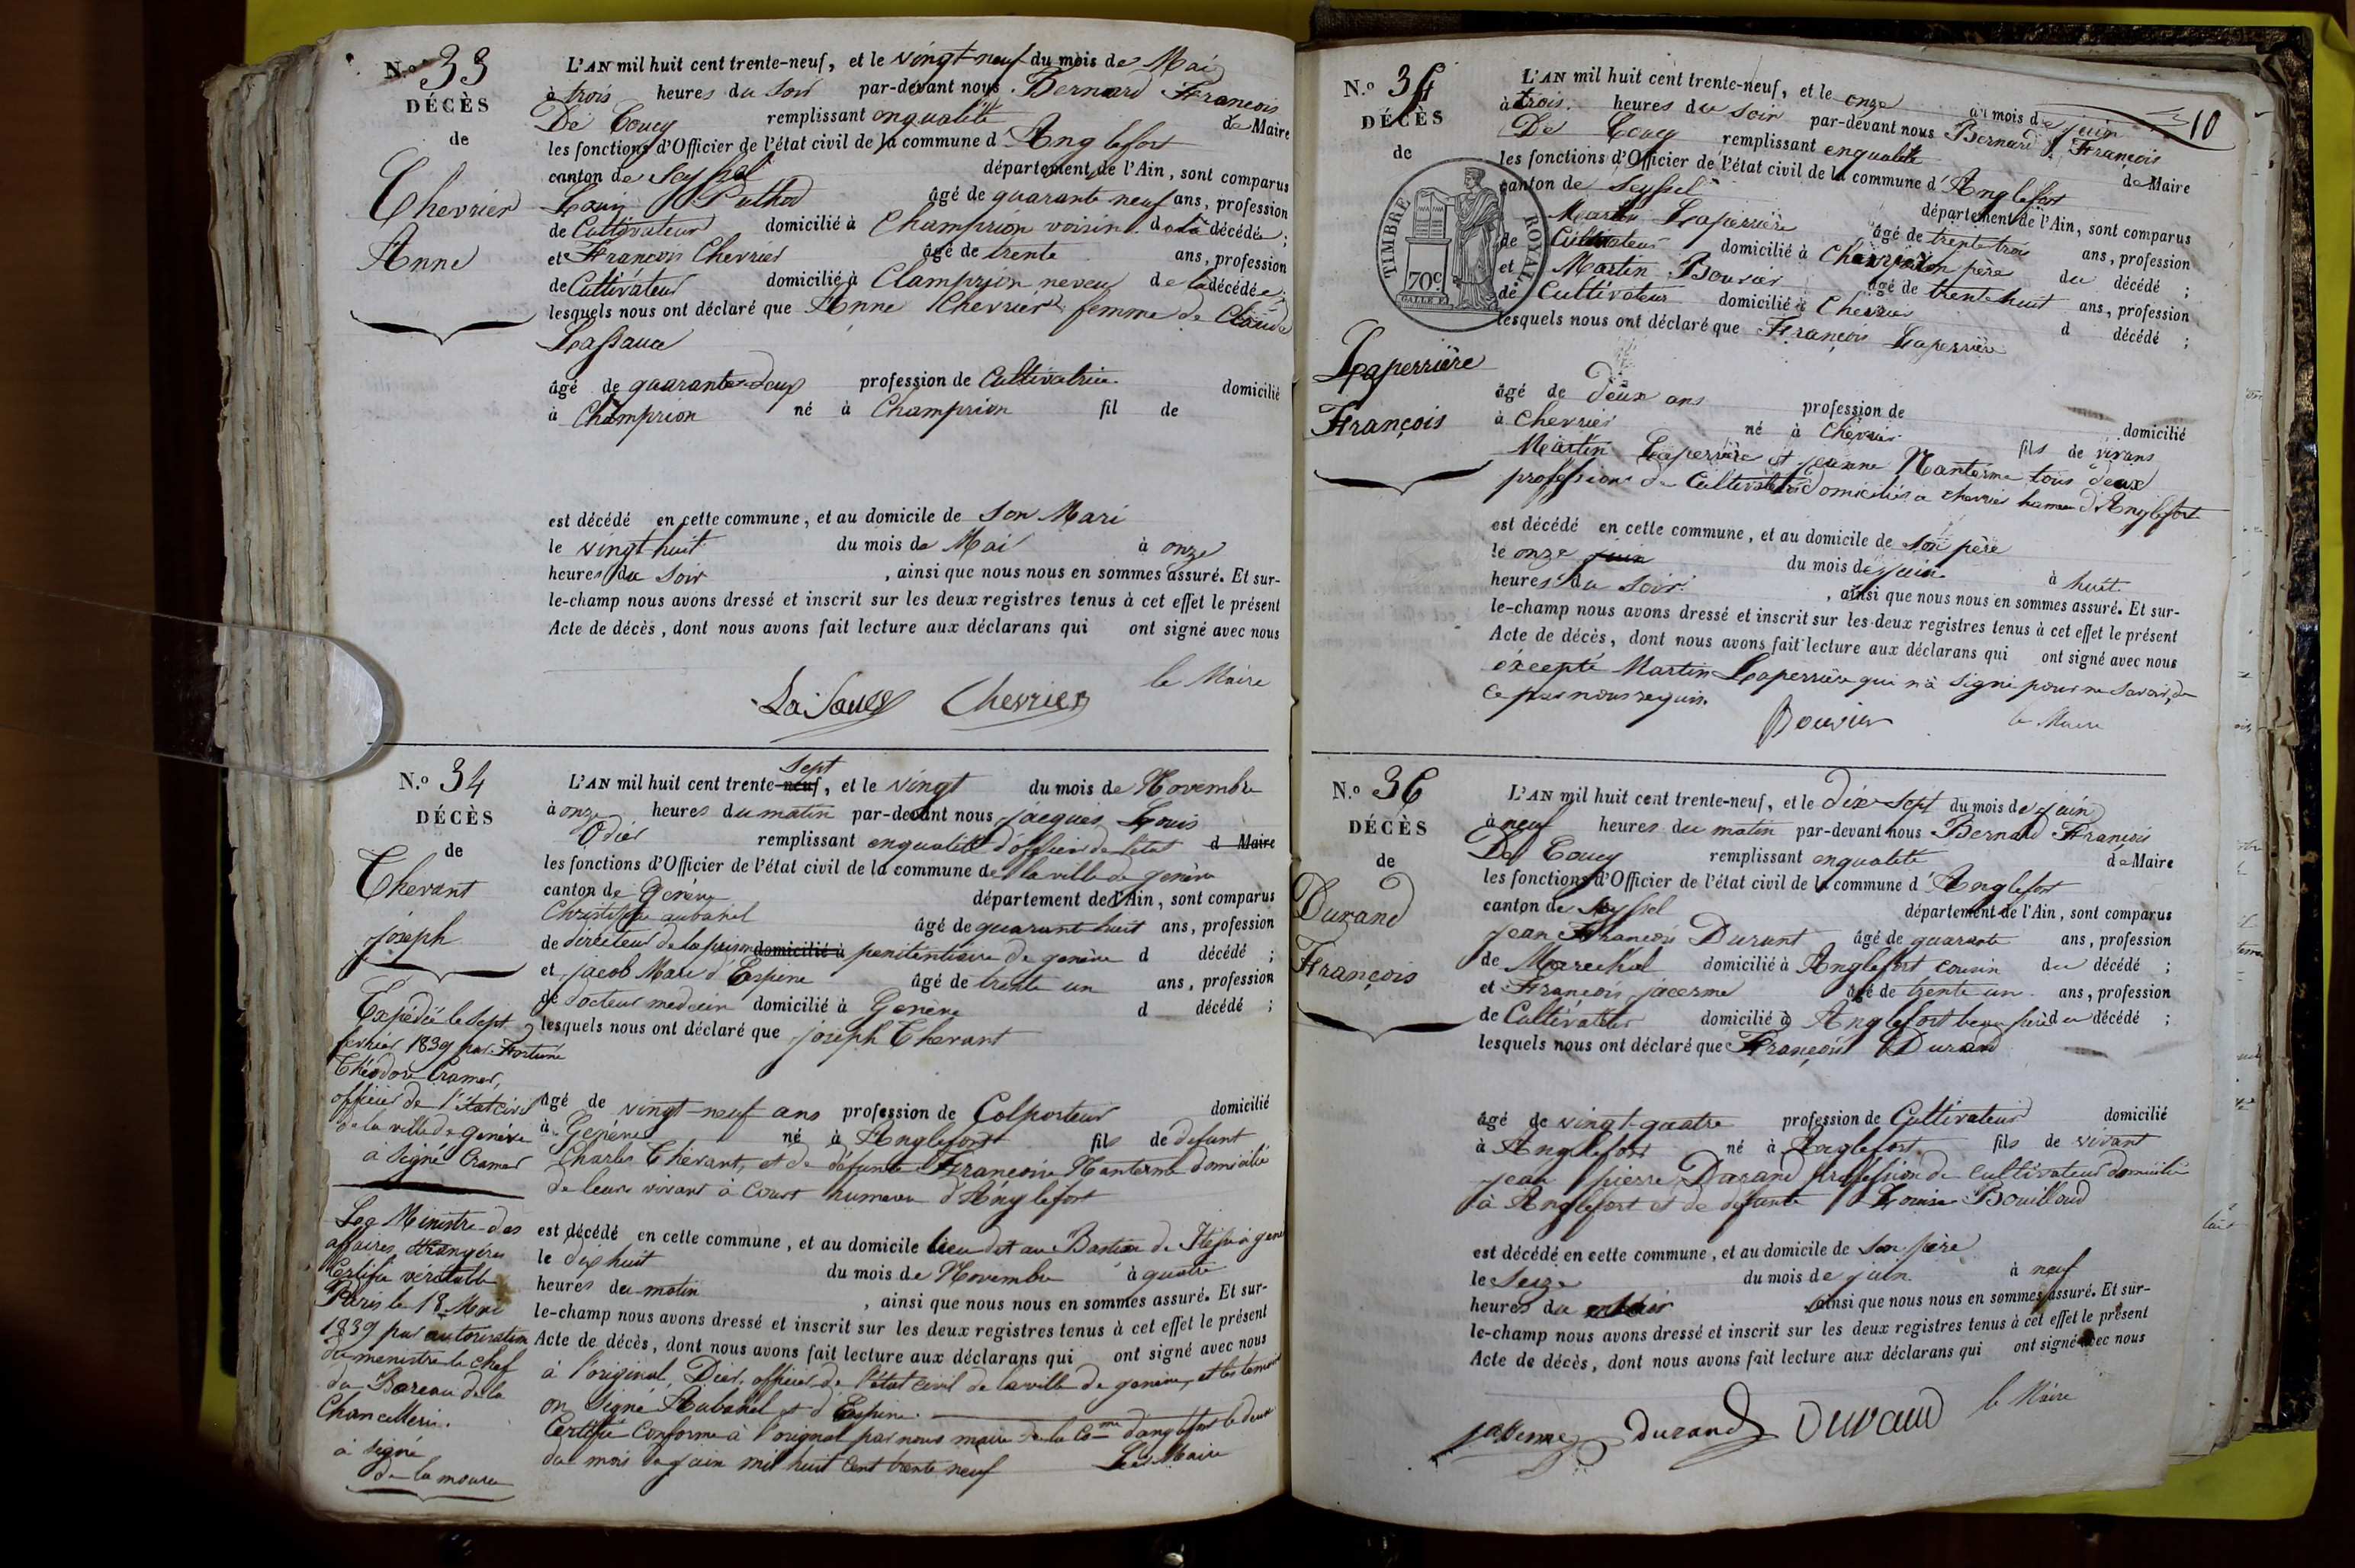 N.o 33
DÉCÈS
de
Chevrier
Anne
L'AN mil huit cent trente-neuf, et le vingt-neuf du mois de Mai
à trois heures du soir par-devant nous Bernard François
De Coucy remplissant en qualité de Maire
les fonctions d'Officier de l'état civil de la commune d'Anglefort
canton de Seyssel département de l'Ain, sont comparus
Louis Puthod âgé de quarante neuf ans, profession
de Cultivateur domicilié à Champrion voisin de la décédée ;
et François Chevrier âgé de trente ans, profession
de Cultivateur domicilié à Champrion neveu de la décédée ;
lesquels nous ont déclaré que Anne Chevrier femme de Claude
Lassauce
âgé de quarante-deux profession de Cultivatrice domicilié
à Champrion né à Champrion fil de
est décédé en cette commune, et au domicile de son Mari
le vingt huit du mois de Mai à onze
heures du soir , ainsi que nous nous en sommes assuré. Et sur-
le-champ nous avons dressé et inscrit sur les deux registres tenus à cet effet le présent
Acte de décès, dont nous avons fait lecture aux déclarans qui ont signé avec nous
le Maire
Chevrier
N.o 34
DÉCÈS
de
Chevant
joseph
Expédié le sept
fevrier 1839 par Fortuné
Théodore Cramer,
officier de l'état civil
de la ville de genève
a signé Cramer
Le Ministre des
affaires étrangères
Certifie véritable
Paris le 18 Mai
1839 par autorisation
du ministre le chef
du Bureau de la
Chancellerie.
a signé
de la moure
L'AN mil huit cent trente-neuf sept, et le vingt du mois de Novembre
à onze heures du matin par-devant nous jacques Louis
Odier remplissant en qualité d'officier de l'état d Maire
les fonctions d'Officier de l'état civil de la commune de la ville de genève
canton de Genève département de l'Ain, sont comparus
Christophe aubanel âgé de quarant-huit ans, profession
de directeur de la prison domicilié à penitentiaire de genève d décédé ;
et jacob Marc d'Espine âgé de trente un ans, profession
de docteur medecin domicilié à Genève d décédé ;
lesquels nous ont déclaré que joseph Chevant
âgé de vingt-neuf ans profession de Colporteur domicilié
à Genève né à Anglefort fils de defunt
Charles Chevant, et de défunte Françoise Nanterme domicilié
de leurs vivant à Court humeau d'Anglefort
est décédé en cette commune, et au domicile lieu dit au Bastion de
le dix huit du mois de Novembre à quatre
heures du matin , ainsi que nous nous en sommes assuré. Et sur-
le-champ nous avons dressé et inscrit sur les deux registres tenus à cet effet le présent
Acte de décès, dont nous avons fait lecture aux déclarans qui ont signé avec nous
à l'original, Dier, officier de l'état civil de la ville de genève, et les temoins
on signé Aubanel et d'Espine.
Certifié Conforme à l'orignal par nous maire de la Co-ne d'anglefort le deux
du mois de juin mil huit cent trente neuf Le Maire
10
N.o 35
DÉCÈS
de
TIMBRE ROYAL
70c
Laperrière
François
L'AN mil huit cent trente-neuf, et le onze du mois de juin
à trois heures du soir par-devant nous Bernard François
De Coucy remplissant en qualité de Maire
les fonctions d'Officier de l'état civil de la commune d'Anglefort
canton de Seyssel département de l'Ain, sont comparus
Martin Laperrière âgé de trente trois ans, profession
de Cultivateur domicilié à père du décédé ;
et Martin Bouvier âgé de trente huit ans, profession
de Cultivateur domicilié à Chevrier d décédé ;
lesquels nous ont déclaré que François Laperrière
âgé de deux ans profession de domicilié
à Chevrier né à Chevrier fils de vivans
Martin Laperrière et jeanne Nanterme tous deux
profession de Cultivateur domiciliés a chevrier hameau d'Anglefort
est décédé en cette commune, et au domicile de son père
le onze juin du mois de juin à huit
heures du soir , ainsi que nous nous en sommes assuré. Et sur-
le-champ nous avons dressé et inscrit sur les deux registres tenus à cet effet le présent
Acte de décès, dont nous avons fait lecture aux déclarans qui ont signé avec nous
excepté Martin Laperrière qui n'à signé pour ne savoir, de
ce par nous requis.
Bouvier le Maire
N.o 36
DÉCÈS
de
Durand
François
L'AN mil huit cent trente-neuf, et le dix sept du mois de juin
à neuf heures du matin par-devant nous Bernard François
De Coucy remplissant en qualité de Maire
les fonctions d'Officier de l'état civil de la commune d'Anglefort
canton de Seyssel département de l'Ain, sont comparus
jean François Durant âgé de quarante ans, profession
de Marechal domicilié à Anglefort cousin du décédé ;
et François jacerme âgé de trente un ans, profession
de Cultivateur domicilié à Anglefort beau père du décédé ;
lesquels nous ont déclaré que François Durand
âgé de vingt-quatre profession de Cultivateur domicilié
à Anglefort né à Anglefort fils de vivant
jean pierre Durand profession de cultivateur domicilié
à Anglefort et de defunte Louise Bouilloud
est décédé en cette commune, et au domicile de son père
le Seize du mois de juin à neuf
heures du soir , ainsi que nous nous en sommes assuré. Et sur-
le-champ nous avons dressé et inscrit sur les deux registres tenus à cet effet le présent
Acte de décès, dont nous avons fait lecture aux déclarans qui ont signé avec nous
le Maire
Durand Durand